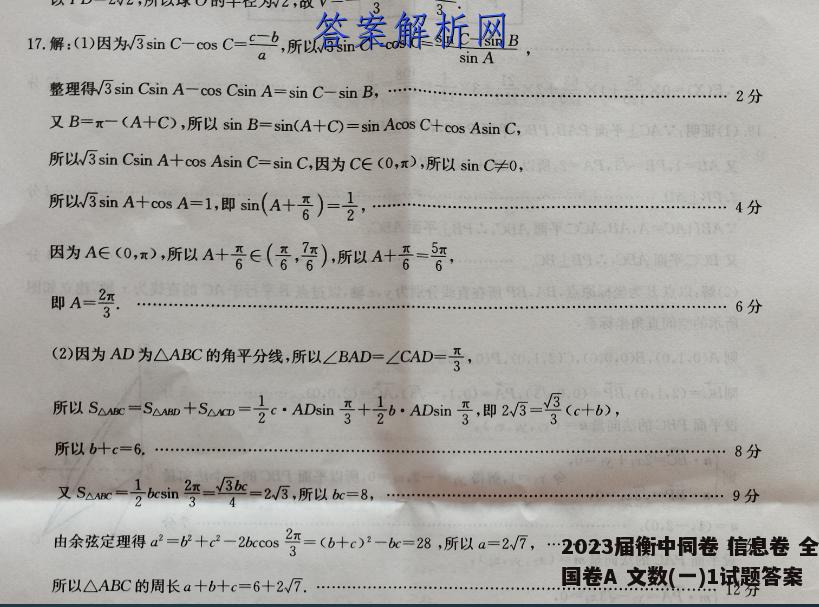 以PD=2√2,所以球O的半径为√2,故V=
3
3
答案解析网
17.解:(1)因为√3 sin C-cos C=(c-b)/a,所以√3 sin C-cos C=(sin C-sin B)/sin A,
整理得√3 sin Csin A-cos Csin A=sin C-sin B, ………… 2分
又B=π-(A+C),所以 sin B=sin(A+C)=sin Acos C+cos Asin C,
所以√3 sin Csin A+cos Asin C=sin C,因为C∈(0,π),所以 sin C≠0,
所以√3 sin A+cos A=1,即 sin(A+π/6)=1/2, ………… 4分
因为A∈(0,π),所以A+π/6∈(π/6,7π/6),所以A+π/6=5π/6,
即A=2π/3. ………… 6分
(2)因为AD为△ABC的角平分线,所以∠BAD=∠CAD=π/3,
所以 S△ABC=S△ABD+S△ACD=1/2 c·ADsin π/3+1/2 b·ADsin π/3,即2√3=√3/3(c+b),
所以b+c=6. ………… 8分
又S△ABC=1/2 bcsin 2π/3=√3bc/4=2√3,所以bc=8, ………… 9分
由余弦定理得a²=b²+c²-2bccos 2π/3=(b+c)²-bc=28,所以a=2√7, …
所以△ABC的周长a+b+c=6+2√7. ………… 12分
2023届衡中同卷 信息卷 全
国卷A 文数(一)1试题答案